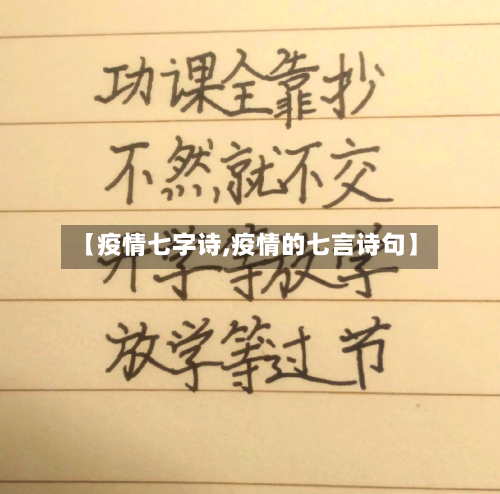 功课全靠抄
不然,就不交
【疫情七字诗,疫情的七言诗句】
开学等放学
放学等过节